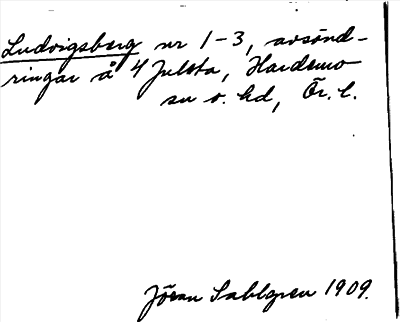 Ludvigsberg nr 1-3, avsönd-
ringar å 4 Julsta, Hardemo
sn o. hd, Ör. l.
Jöran Sahlgren 1909.